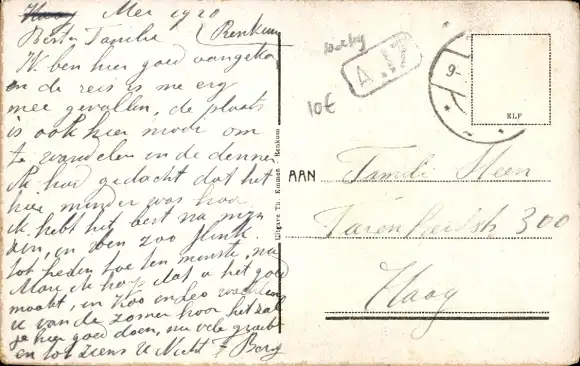 Mei 1920
Beste Familie (Renkum
Ik ben hier goed aangeko
en de reis is me erg
mee gevallen, de plaats
is ook hier mooi om
te wandelen in de denne
Ik had gedacht dat het
hier minder was hoor
ik hebt het best na mijn
zin, en ben zoo
tot heden toe ten minste, na
Mare ik hoop dat u het goed
maakt, en Koo en Leo
u van de zomer hoor het zal
je hier goed doen, nu vele groet
en tot ziens U Nicht F Berg
Uitgave Th. Emmen, Renkum
A.17
10€
9-
ELF
AAN
Familie Steen
300
Haag